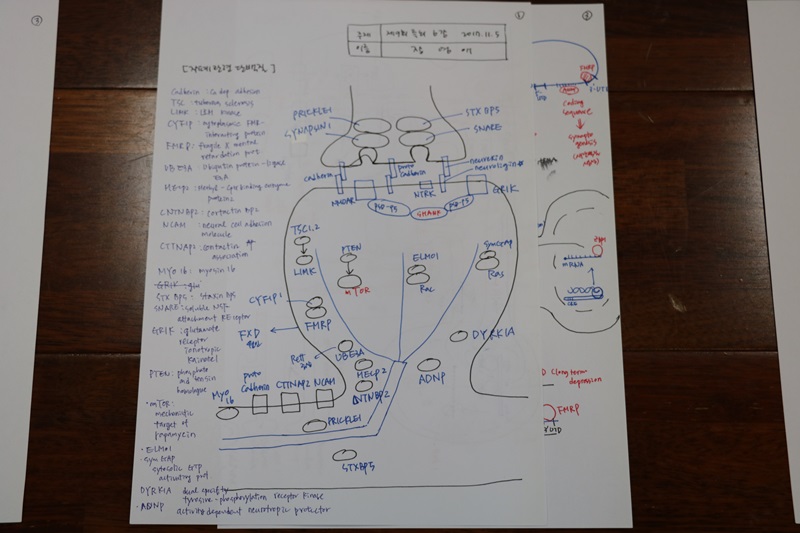 ③
①
②
주제
이름
2017. 11. 5
Cadherin : Ca dep adhesion
TSC : tuberous sclerosis
LIMK : LIM kinase
CYFIP : cytoplasmic FMR-
interacting protein
FMRP : fragile X mental
retardation prot.
UBE3A : Ubiquitin protein-ligase
E3A
MECP2 : Methyl-CpG binding
protein 2
CNTNBP2 : contactin BP2
NCAM : neural cell adhesion
molecule
CTTNAP2 : contactin
association
MYO 16 : myosin 16
GRIK : glu
STXBP5 : Staxin BP5
SNARE : soluble NSF
attachment REceptor
GRIK : glutamate
receptor
ionotropic
Kainate 1
PTEN : phosphate
and tensin
homologue
• mTOR :
mechanistic
target of
rapamycin
• ELMO1
• SynGAP
cytosolic GTP
activating prot
DYRK1A dual specifity
tyrosine-phosphorylation receptor kinase
• ADNP activity dependent neurotropic protector
PRICKLE1
SYNAPSIN1
STXBP5
SNARE
cadherin
proto
cadherin
neurexin
neuroligin
NMDAR
NTRK
GRIK
PSD-95
SHANK
PSD-95
TSC1.2
LIMK
PTEN
mTOR
ELMO1
Rac
SynGAP
Ras
CYFIP1
FMRP
FXD
Rett
UBE3A
MECP2
CNTNBP2
DYRK1A
ADNP
MYO
16
proto
Cadherin
CTTNAP2
NCAM
PRICKLE1
STXBP5
FMRP
Coding
sequence
synapto
genesis
mRNA
long term
depression
FMRP